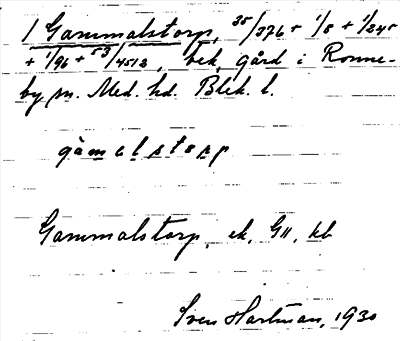 1 Gammalstorp, 35/376 + 1/8 + 1/240
+ 1/96 + 53/4512, bek. gård i Ronne-
by sn. Med. hd. Blek. l.
gàmalstorp
Gammalstorp, ek, G11, kb
Sven Hartman, 1930